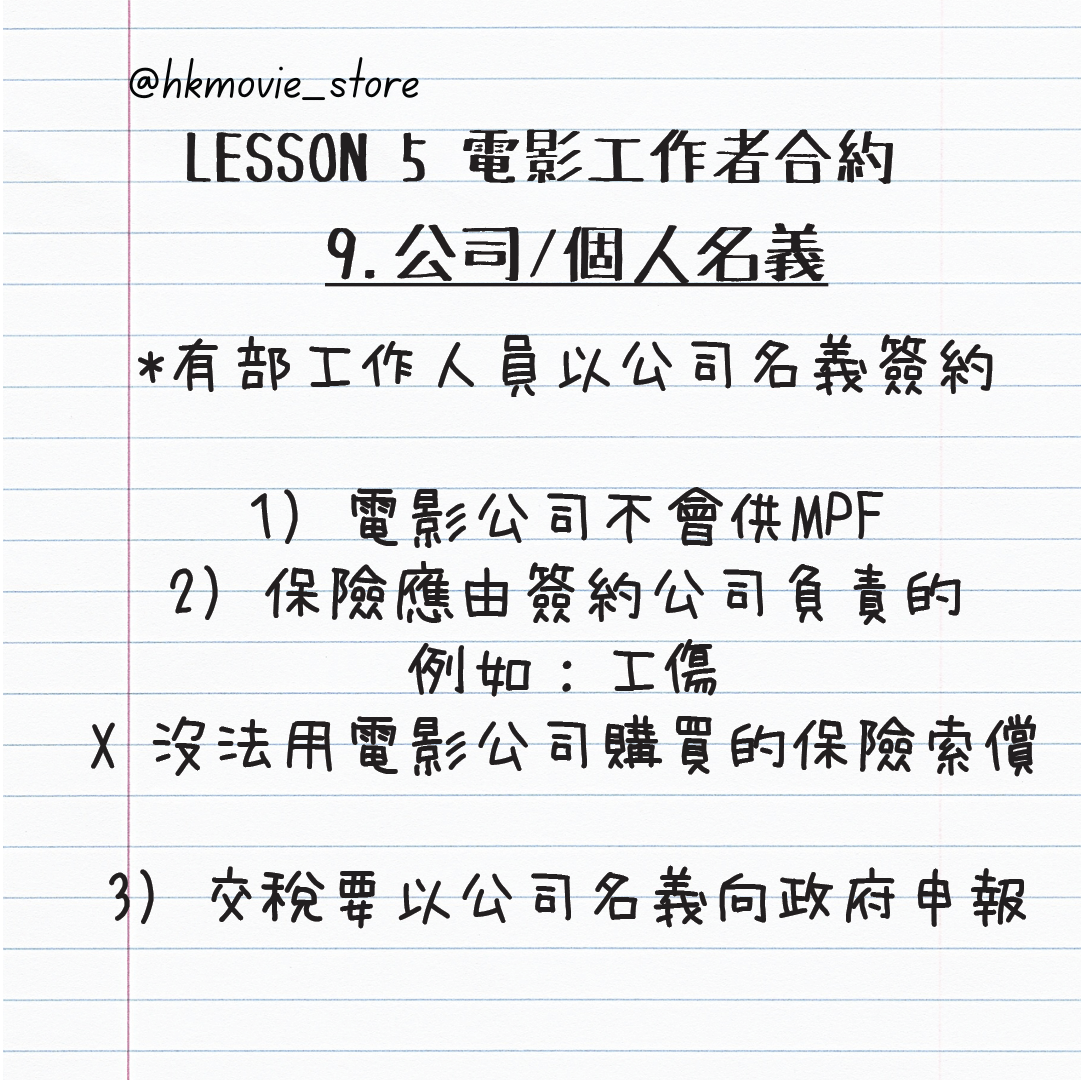 @hkmovie_store
LESSON 5 電影工作者合約
9.公司/個人名義
*有部工作人員以公司名義簽約
1) 電影公司不會供MPF
2) 保險應由簽約公司負責的
例如：工傷
X 沒法用電影公司購買的保險索償
3) 交稅要以公司名義向政府申報